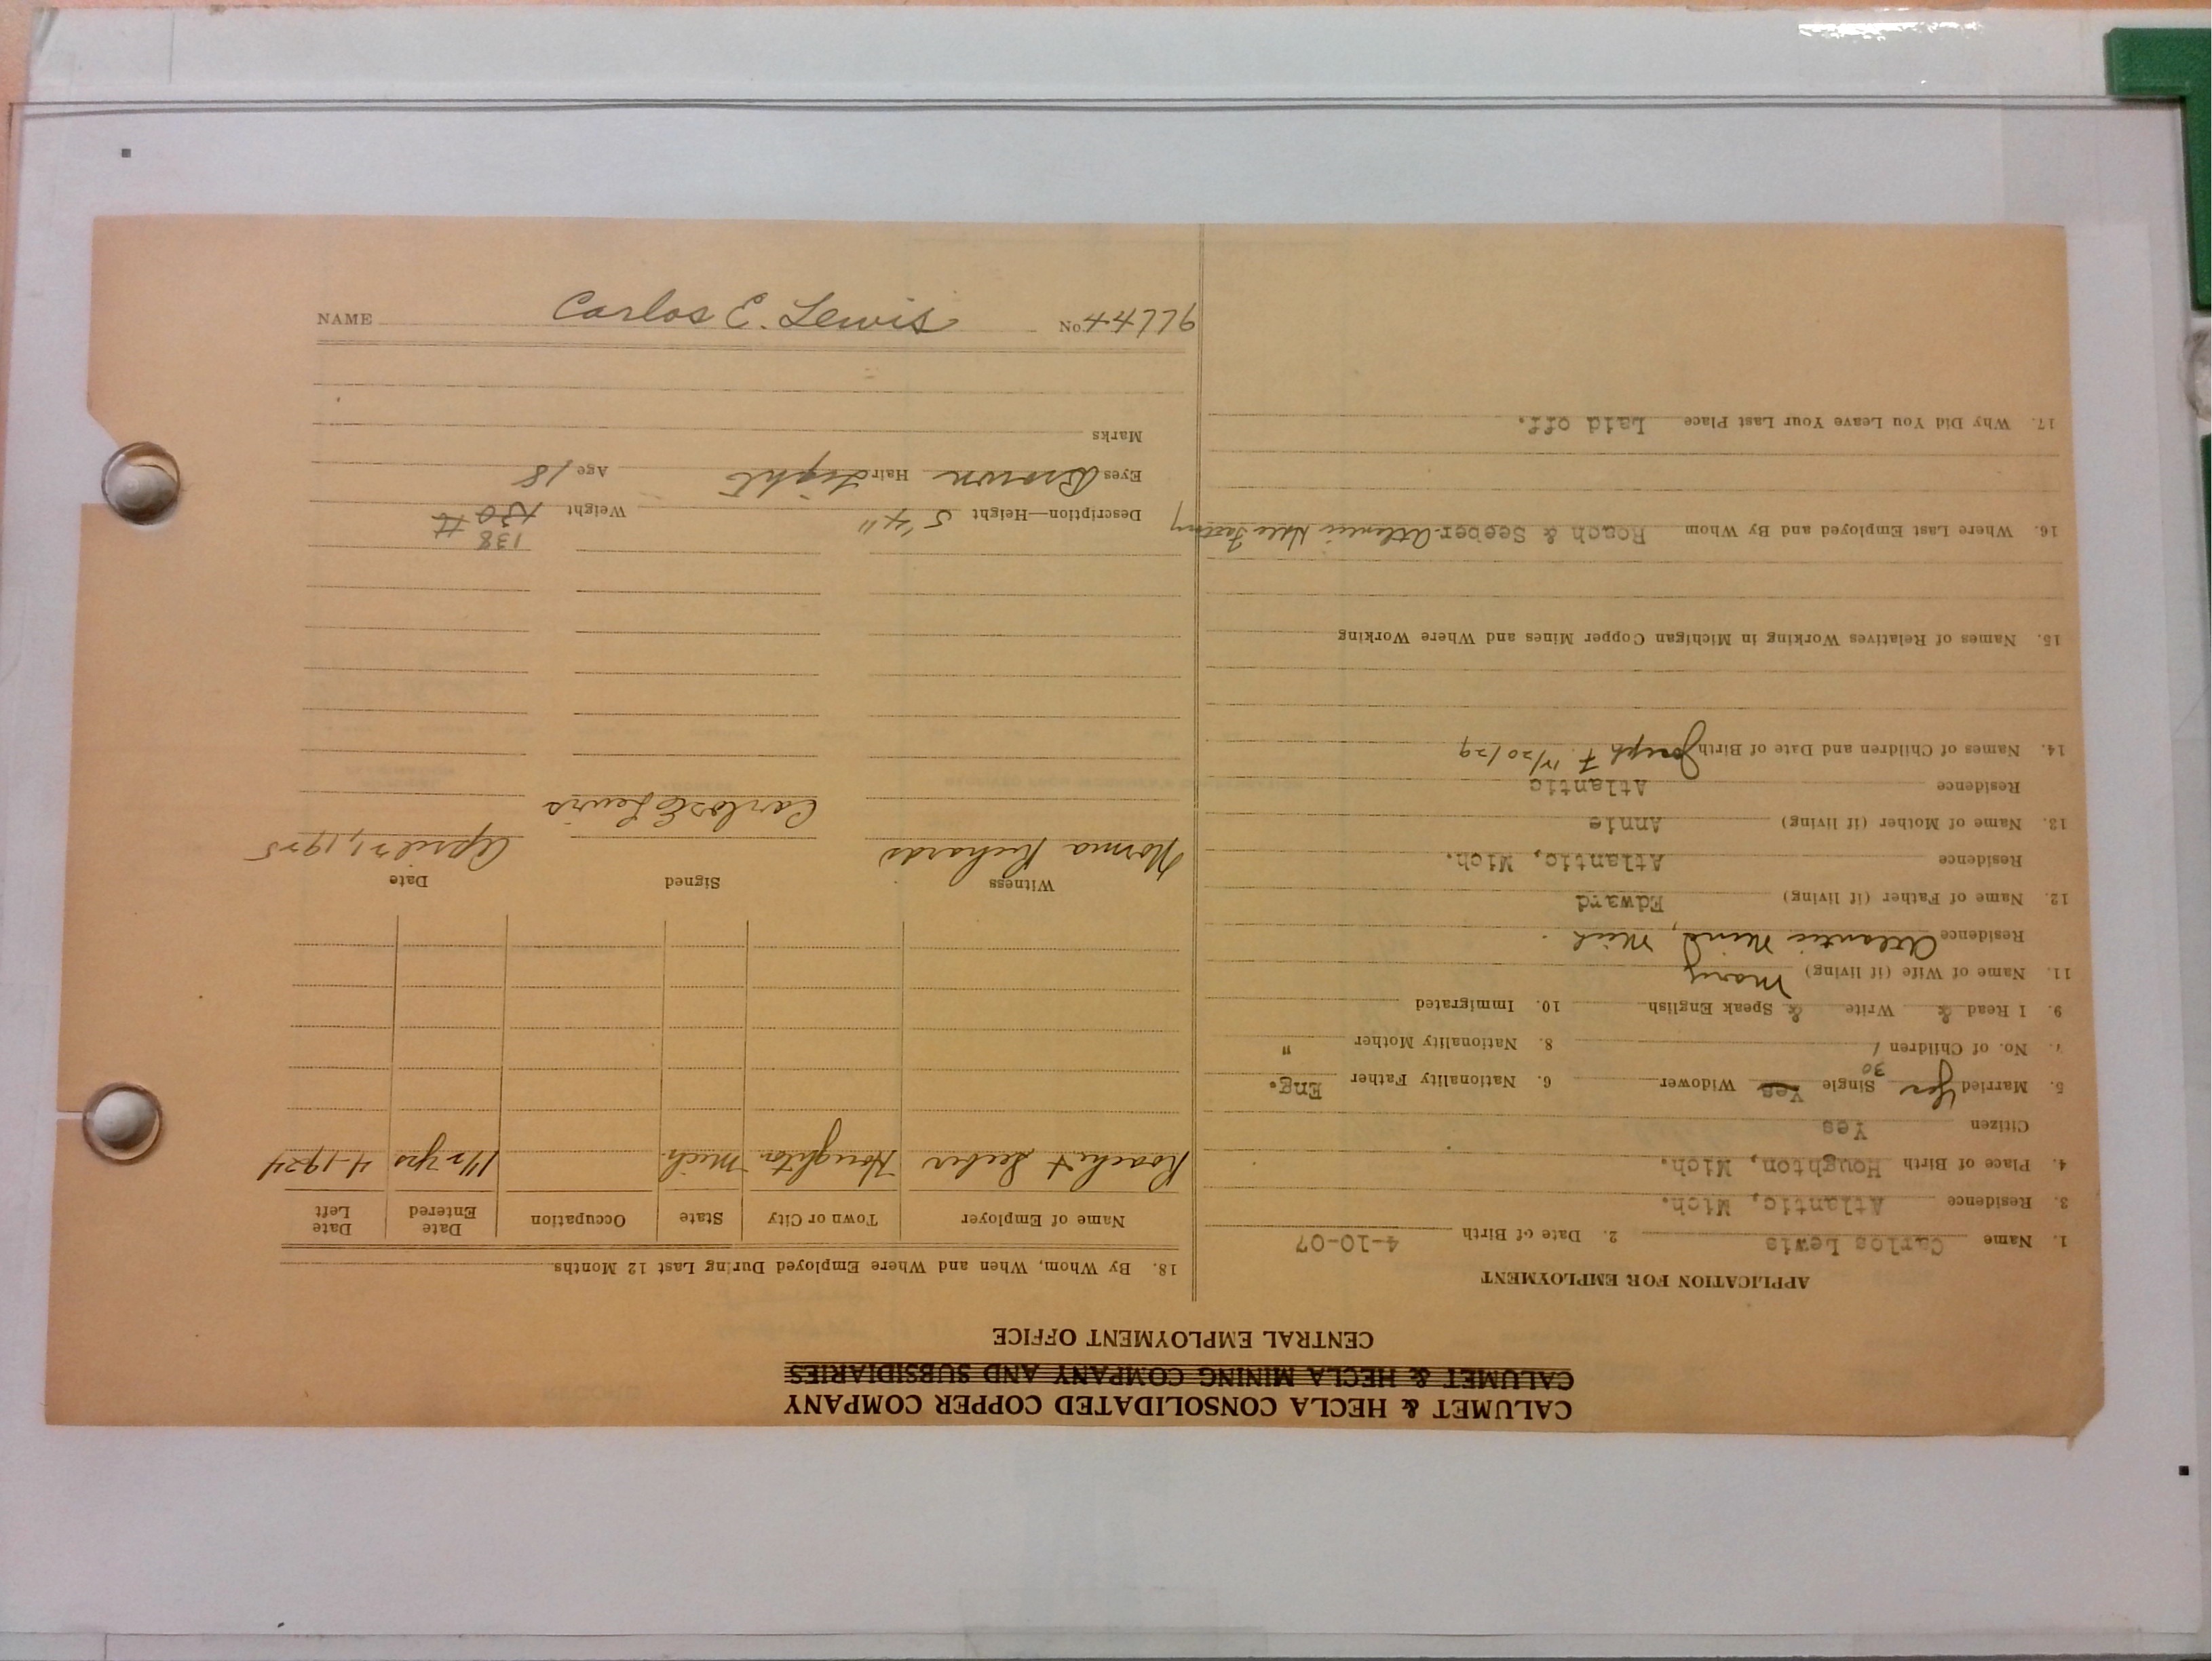 CALUMET & HECLA CONSOLIDATED COPPER COMPANY
CALUMET & HECLA MINING COMPANY AND SUBSIDIARIES
CENTRAL EMPLOYMENT OFFICE
APPLICATION FOR EMPLOYMENT
1. Name Carlos Lewis 2. Date of Birth 4-10-07
3. Residence Atlantic, Mich.
4. Place of Birth Houghton, Mich.
Citizen Yes
5. Married Yes 30 Single Yes Widower 6. Nationality Father Eng.
7. No. of Children 1 8. Nationality Mother "
9. I Read & Write & Speak English 10. Immigrated
11. Name of Wife (if living) Mary
Residence Atlantic Mine, Mich.
12. Name of Father (if living) Edward
Residence Atlantic, Mich.
13. Name of Mother (if living) Annie
Residence Atlantic
14. Names of Children and Date of Birth Joseph F. /20/29
15. Names of Relatives Working in Michigan Copper Mines and Where Working
16. Where Last Employed and By Whom Roach & Seeber Atlantic
17. Why Did You Leave Your Last Place Laid off.
18. By Whom, When and Where Employed During Last 12 Months
Name of Employer Town or City State Occupation Date Entered Date Left
Roach & Seeber Houghton Mich. 1 1/2 yrs 4-1924
Witness Signed Date
Norma Richards Carlos E Lewis April 21, 1925
138
Description—Height 5'4" Weight 130 #
Eyes Brown Hair Light Age 18
Marks
NAME Carlos E. Lewis No. 44776